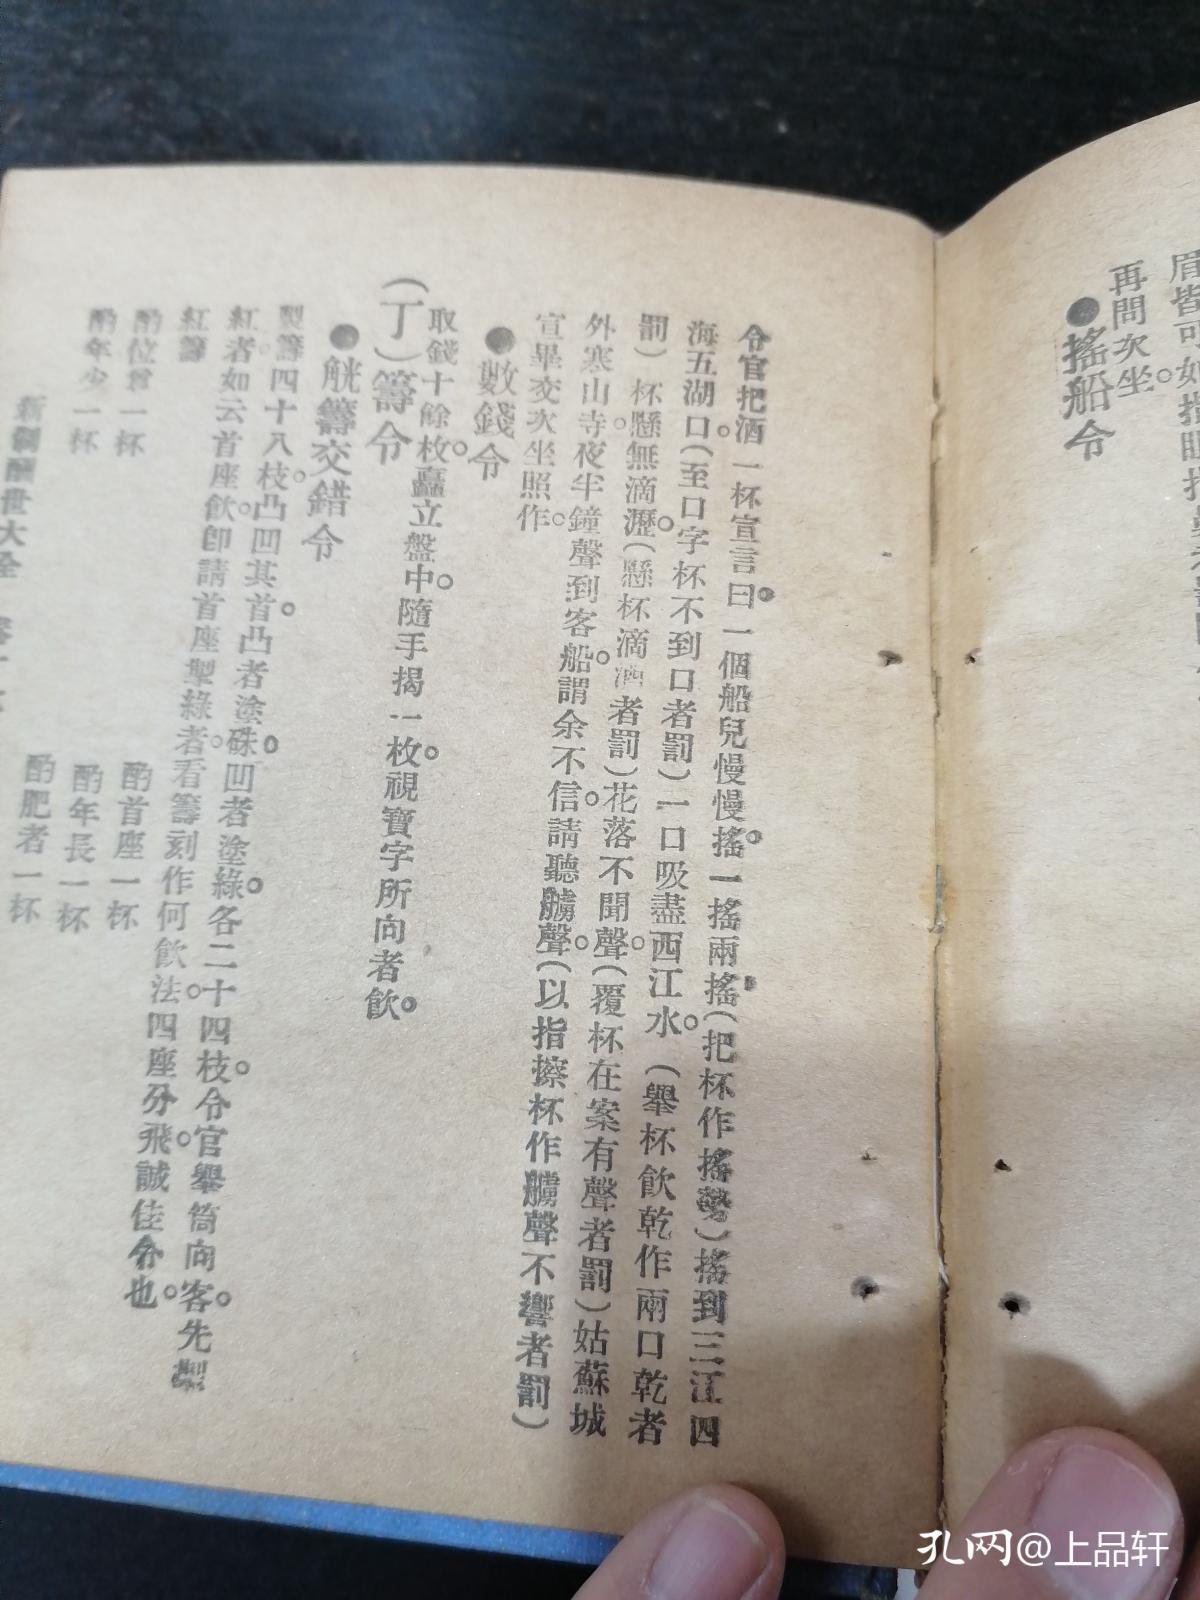 再問次坐
●搖船令
令官把酒一杯宣言曰。一個船兒慢慢搖。一搖兩搖。(把杯作搖勢)搖到三江四
海五湖口。(至口字杯不到口者罰)一口吸盡西江水。(舉杯飲乾作兩口乾者
罰)杯懸無滴瀝。(懸杯滴酒者罰)花落不聞聲。(覆杯在案有聲者罰)姑蘇城
外寒山寺。夜半鐘聲到客船。謂余不信。請聽艣聲。(以指擦杯作艣聲不響者罰)
宣畢交次坐照作。
●數錢令
取錢十餘枚。矗立盤中。隨手揭一枚。視寶字所向者飲。
(丁)籌令
●觥籌交錯令
製籌四十八枝。凸凹其首。凸者塗硃。凹者塗綠。各二十四枝。令官舉筒向客。先掣
紅者。如云首座飲。卽請首座掣綠者。看籌刻作何飲法。四座分飛。誠佳令也。
紅籌
酌首座一杯
酌位曾一杯
酌年長一杯
酌年少一杯
酌肥者一杯
酬世大全